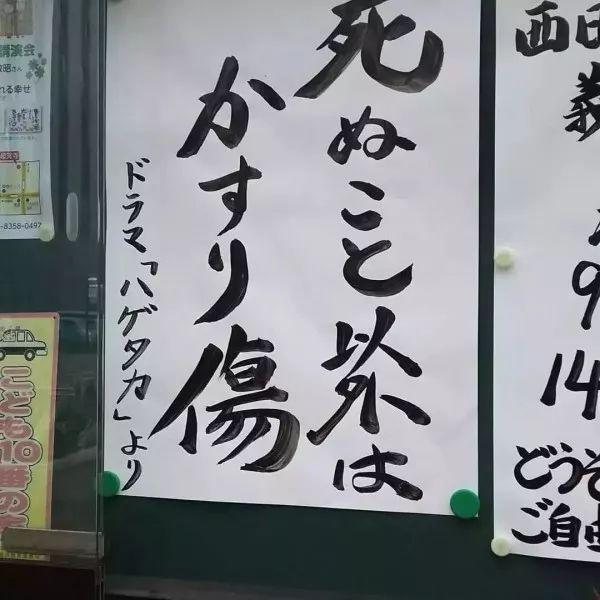 死ぬこと以外は
かすり傷
ドラマ「ハゲタカ」より
講演会
れる幸せ
-8358-0497
こども
10番の
西
義
9
14
どうぞ
ご自由